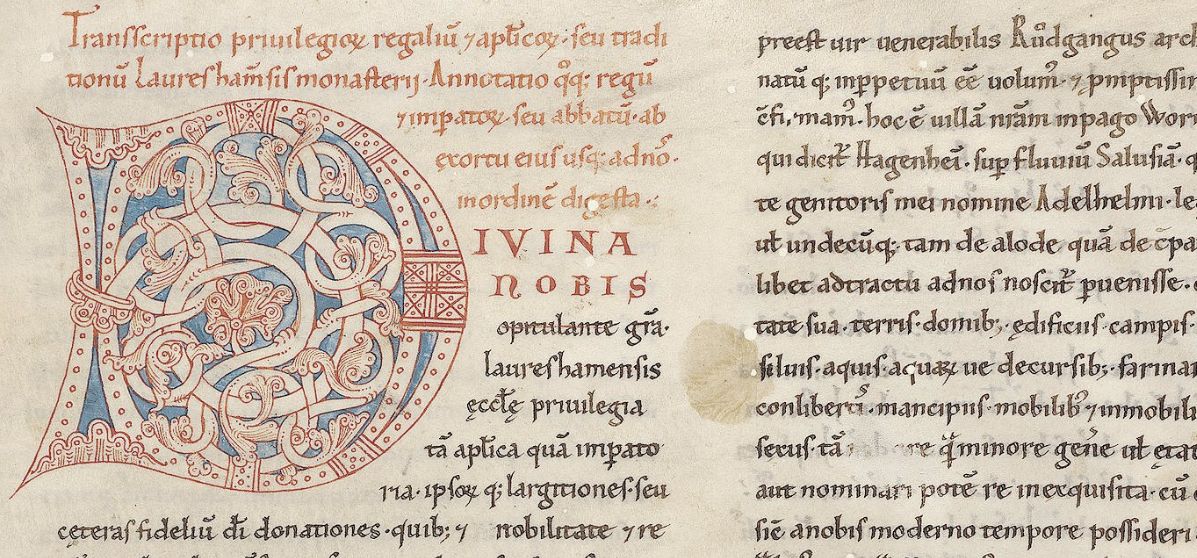 Transscriptio priuilegioꝝ regaliū ⁊ apl̄icoꝝ · seu tradi
tionū Laureshaṁsis monasterij · Annotatio qͦqꝫ regū
⁊ imꝑatoꝝ · seu abbatū · ab
exortu eius usqꝫ ad nōs ·
in ordinē digesta ·:
DIVINA
NOBIS
opitulante gr̄a ·
laureshamensis
ęccłę priuilegia
tā apl̄ica quā imꝑato
ria · ipsoꝝ qꝫ largitiones · seu
cęteras fideliū dī donationes · quibꝫ ⁊ nobilitate ⁊ re
preest uir uenerabilis Růdgangus arch
natū qꝫ inꝑpetuū eē uolumꝰ · ⁊ ꝓmptissi
c̄fi,mamꝰ · hoc ē uillā nr̄am in pago Wor
qui dicit᷑ Hagenheī · suꝑ fluuiū Salusiā · q
te genitoris mei nomine Adelhelmi · le
ut̄ undecūqꝫ tam de alode quā de c̄pa
libet adtractu ad nos noscit᷑ ꝑuenisse ·
tate sua · terris · domibꝫ · ędificiis · campis ·
siluis · aquis · aquaꝝ ue decursibꝫ · farinar
conlibertꝭ · mancipiis · mobilibꝰ ⁊ inmobili
serus tā re qͣ minore gen̄e ut̄ ętat
aut nominari potē re inexquisita · cū
siē a nobis moderno tempore possideri